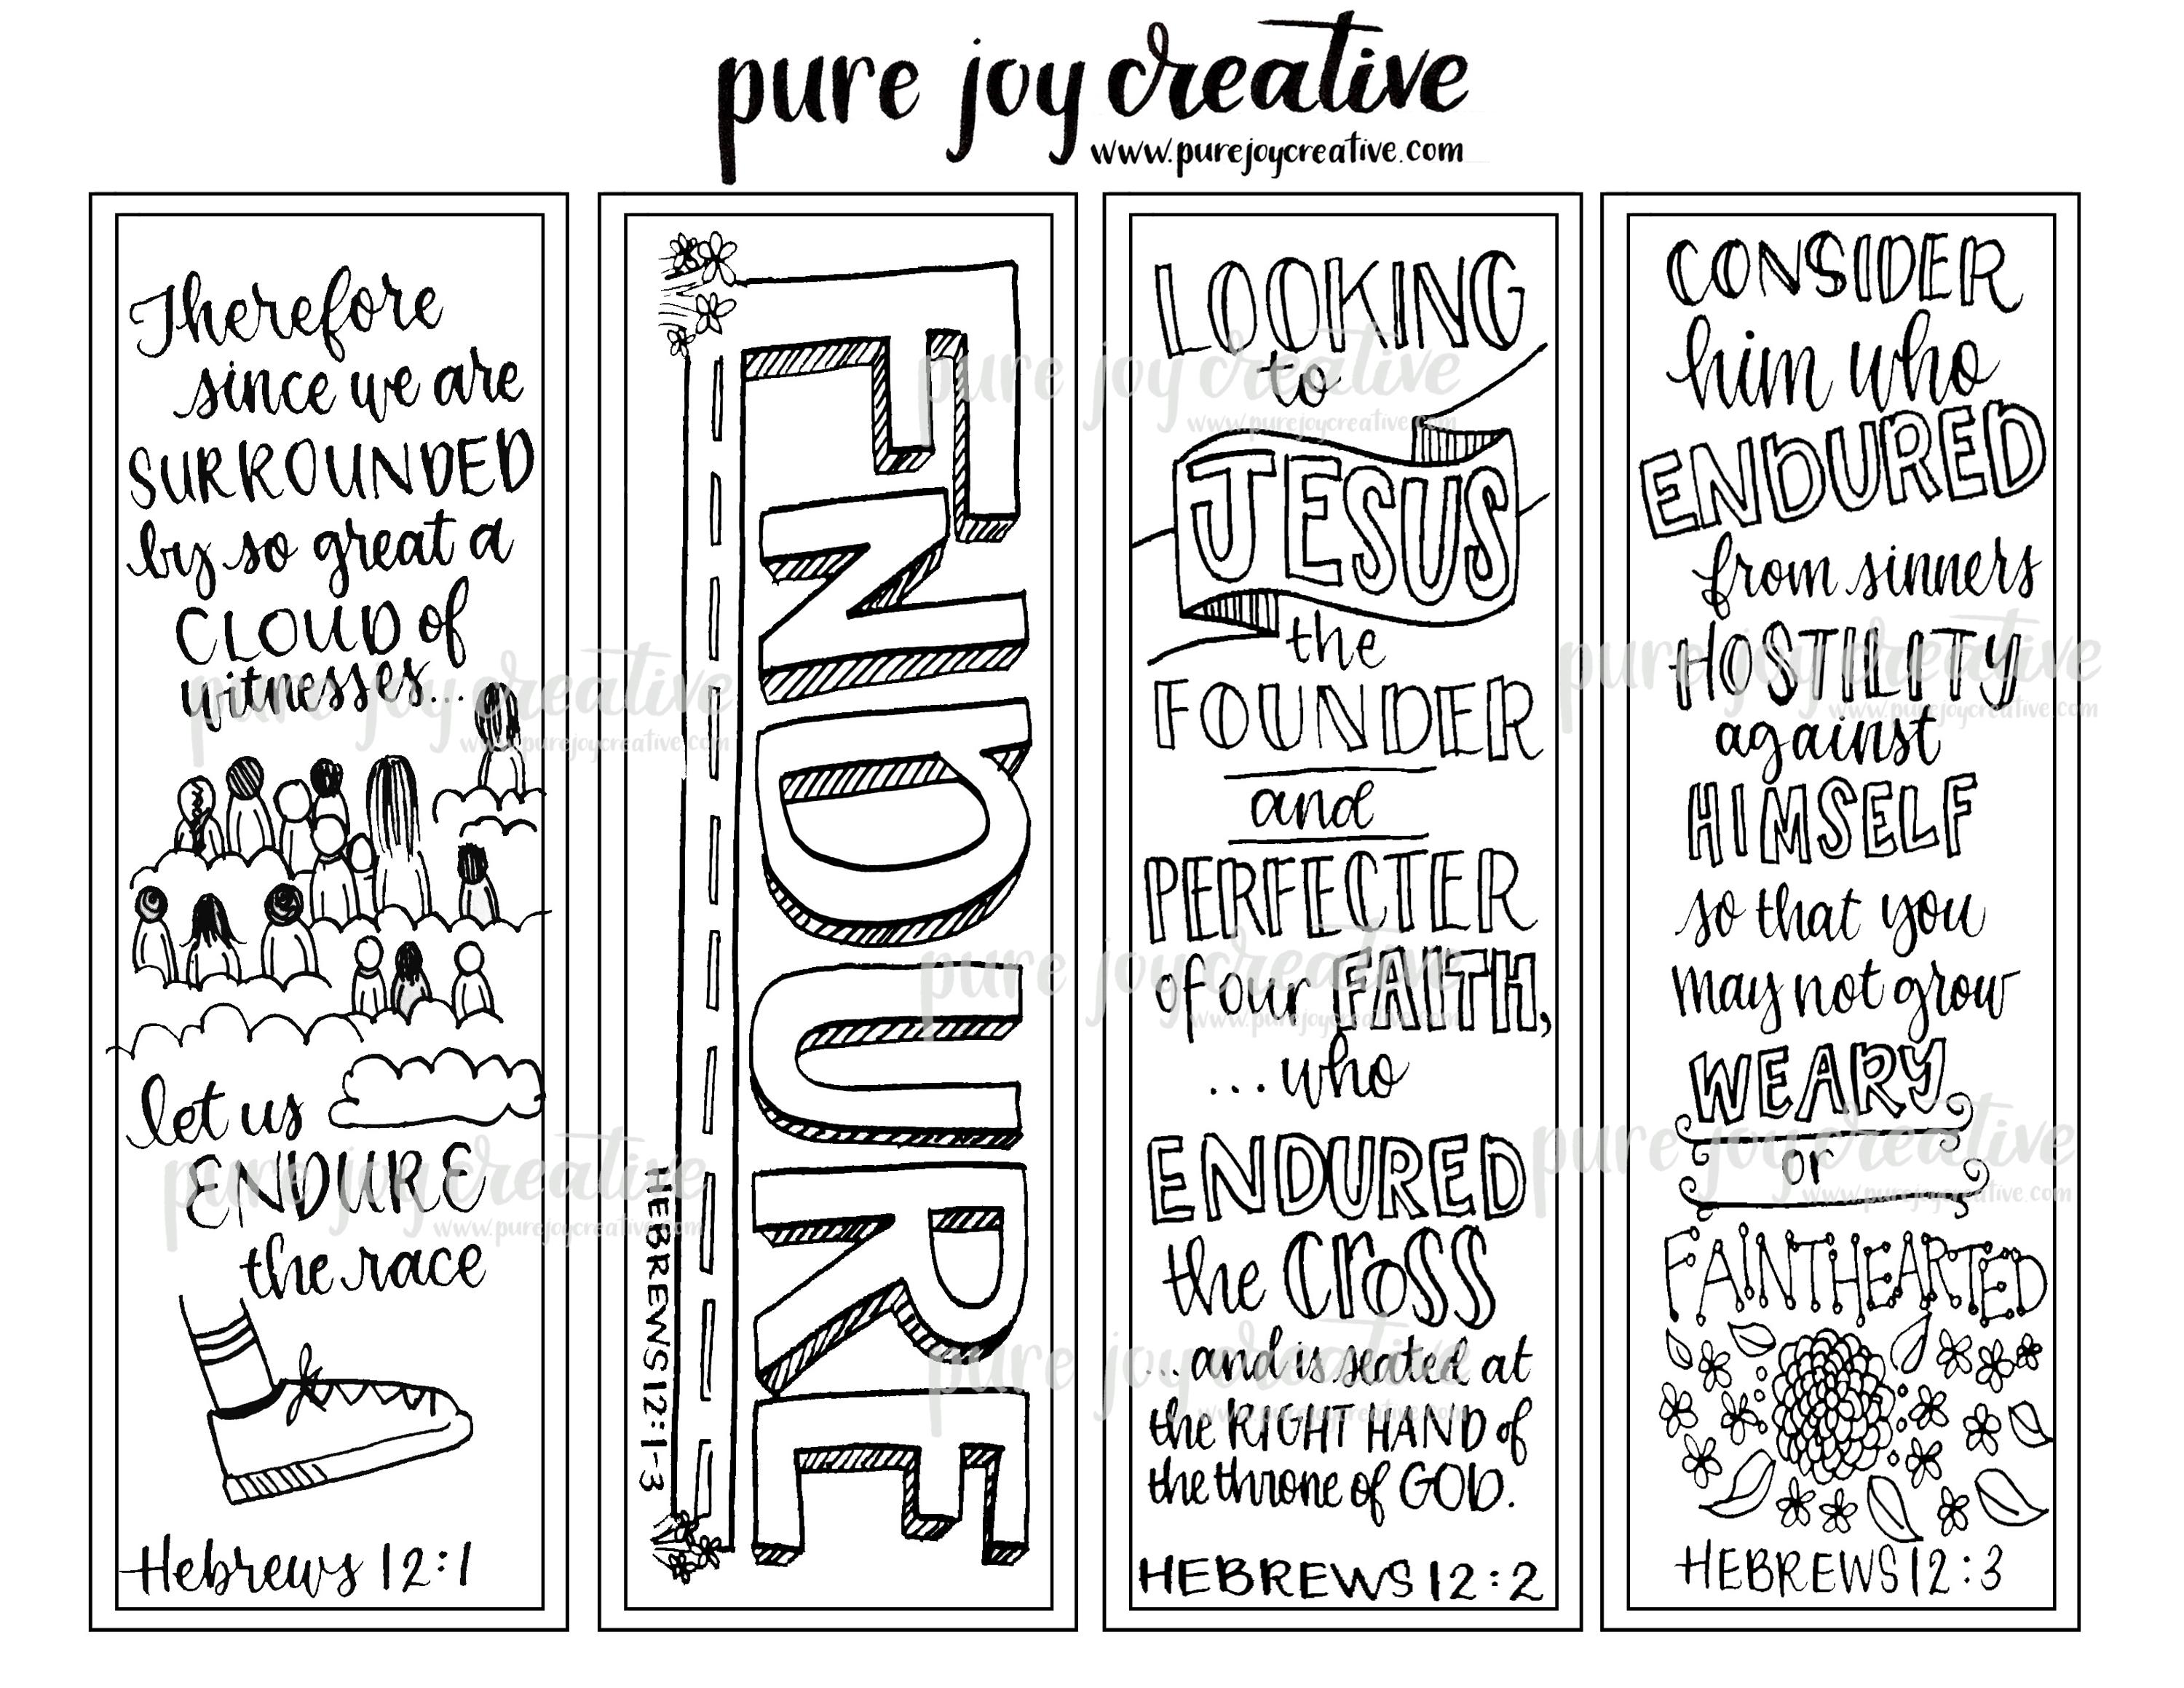 pure joy creative
www.purejoycreative.com
Therefore
since we are
SURROUNDED
by so great a
CLOUD of
witnesses...
let us
ENDURE
the race
Hebrews 12:1
ENDURE
HEBREWS 12:1-3
LOOKING
to
JESUS
the
FOUNDER
and
PERFECTER
of our FAITH,
...who
ENDURED
the CROSS
...and is seated at
the RIGHT HAND of
the throne of GOD.
HEBREWS 12:2
CONSIDER
him who
ENDURED
from sinners
HOSTILITY
against
HIMSELF
so that you
may not grow
WEARY
or
FAINTHEARTED
HEBREWS 12:3
pure joy creative
www.purejoycreative.com
pure joy creative
www.purejoycreative.com
pure joy creative
www.purejoycreative.com
pure joy creative
www.purejoycreative.com
pure joy creative
www.purejoycreative.com
pure joy creative
www.purejoycreative.com
pure joy creative
www.purejoycreative.com